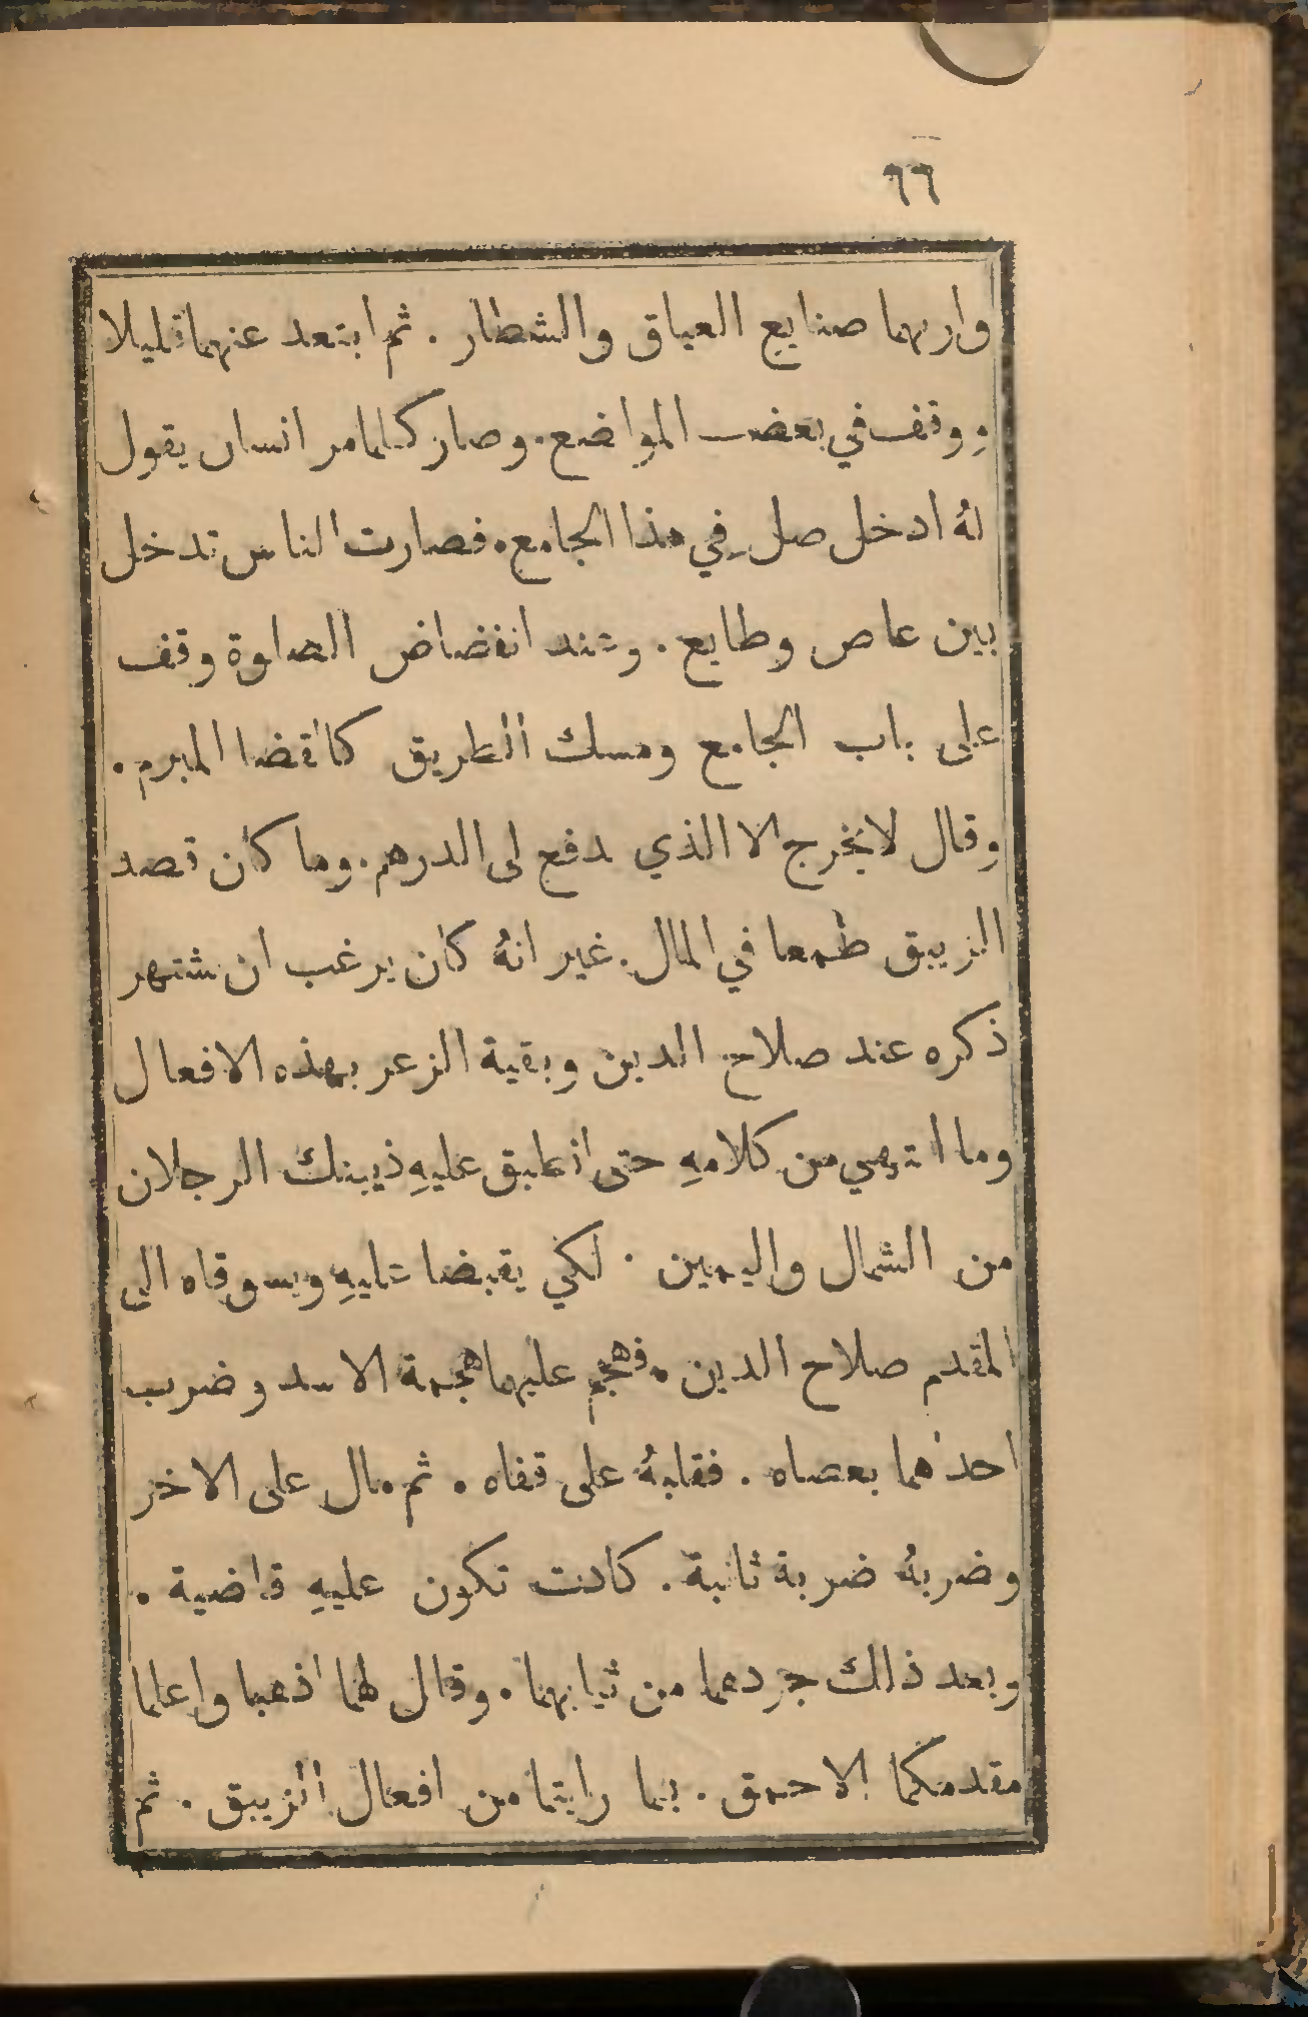 ٩٦
واريهما صنايع العياق والشطار . ثم ابتعد عنهما قليلا
ووقف في بعض المواضع . وصار كلما مر انسان يقول
لهُ ادخل صل في هذا الجامع . فصارت الناس تدخل
بين عاص وطايع . وعند انفضاض الصلوة وقف
على باب الجامع ومسك الطريق كالقضا المبرم .
وقال لا يخرج الا الذي يدفع لى الدرهم . وما كان قصد
الزيبق طمعا في المال . غير انهُ كان يرغب ان يشتهر
ذكره عند صلاح الدين وبقية الزعر بهذه الافعال
وما انتهي من كلامهِ حتى انطبق عليهِ ذيينك الرجلان
من الشمال واليمين . لكي يقبضا عليهِ ويسوقاه الي
المقدم صلاح الدين . فهجم عليهما هجمة الاسد وضرب
احدهما بعصاه . فقلبهُ على قفاه . ثم مال على الاخر
وضربهُ ضربة ثانية . كادت تكون عليهِ قاضية .
وبعد ذلك جردهما من ثيابهما . وقال لهما اذهبا واعلما
مقدمكما الاحمق . بما رايتما من افعال الزيبق . ثم